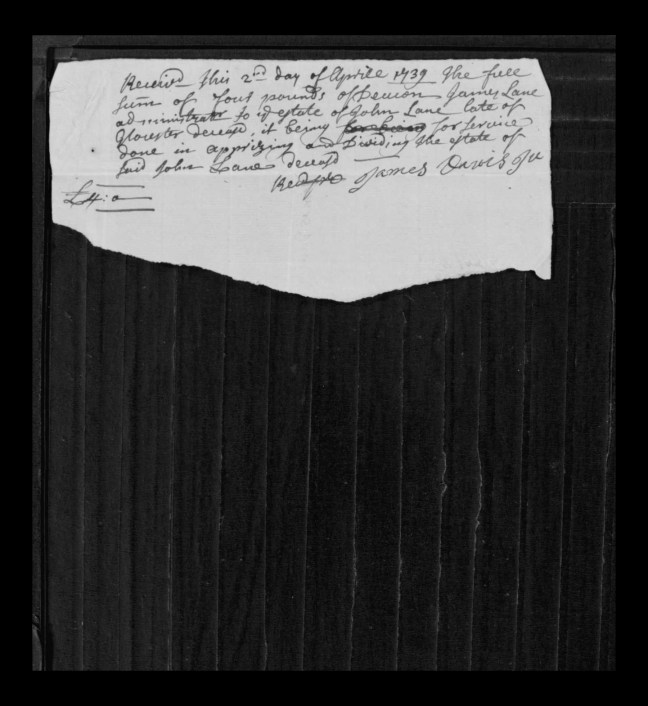 Received this 2nd day of Aprile 1739 the full
sum of four pounds of Deacon James Lane
administrator to ye estate of John Lane late of
Glocester decesd, it being for service
done in apprizing and Dividing the estate of
said John Lane decesd
Recd pr James Davis Ju
£4:0